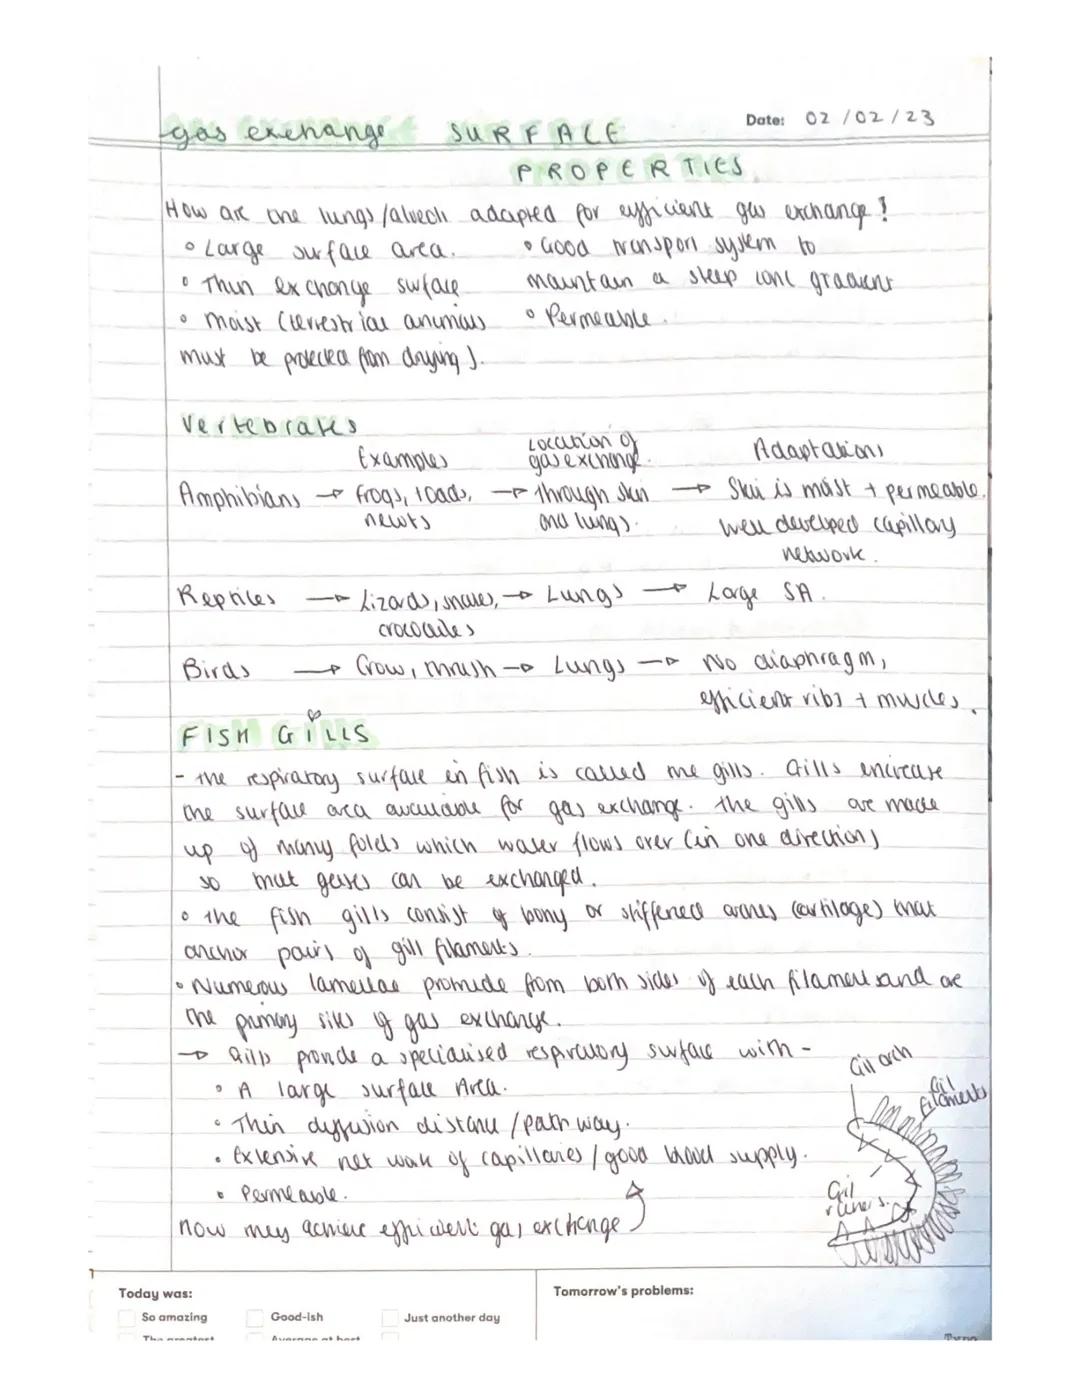 gas exchange SURFACE
Date: 02/02/23
PROPERTIES
How are the lungs/alveoli adapted for efficient gas exchange?
• Large surface area. • Good transport system to
• Thin exchange surface maintain a steep conc gradient
• Moist (terrestrial animals • Permeable.
must be protected from drying).
Vertebrates
Examples Location of gas exchange. Adaptations
Amphibians → frogs, toads, → through skin → Skin is moist + permeable.
newts and lungs. well developed capillary
network.
Reptiles → Lizards, snakes, → Lungs → Large SA.
crocodiles
Birds → Crow, thrush → Lungs → No diaphragm,
efficient ribs + muscles.
FISH GILLS
- The respiratory surface in fish is called the gills. Gills increase
the surface area available for gas exchange. The gills are made
up of many folds which water flows over (in one direction)
so that gases can be exchanged.
• The fish gills consist of bony or stiffened arches (cartilage) that
anchor pairs of gill filaments.
• Numerous lamellae protrude from both sides of each filament and are
the primary sites of gas exchange.
→ Gills provide a specialised respiratory surface with -
• A large surface Area.
• Thin diffusion distance/pathway.
• Extensive net work of capillaries/good blood supply.
• Permeable.
how they achieve efficient gas exchange
Gill arch
Gil filaments
Gil rakers.
Today was:
Tomorrow's problems:
So amazing Good-ish Just another day
The greatest Average at best